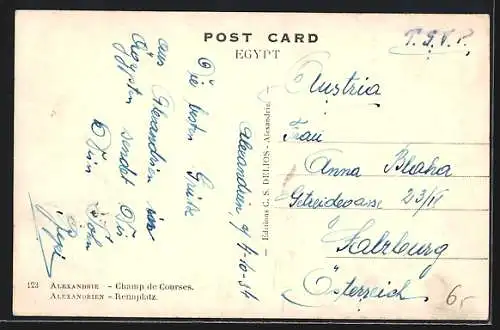 POST CARD
EGYPT
T.S.V.P.
Alexandrien, 9/4-10-54
Die besten Grüße
aus Alexandrien in
Ägypten sendet Dir
Dein Sohn
Editions C. S. DELIOS - Alexandrie.
Austria
Frau
Anna Blaha
Getreidegasse 23/II
Salzburg
Österreich
6,-
123 ALEXANDRIE - Champ de Courses.
ALEXANDRIEN - Rennplatz.